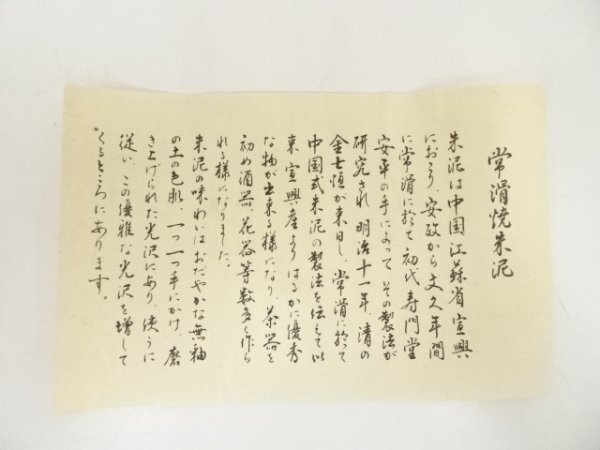 常滑焼朱泥
朱泥は中国江蘇省宣興
におこり、安政から文久年間
に常滑に於て初代寿門堂
安平の手によって その製法が
研究され 明治十一年、清の
金士恒が来日し、常滑に於って
中国式朱泥の製法を伝えて以
来 宣興産より はるかに優秀
な物が出来る様になり、茶器を
初め酒器 花器等数多く作ら
れる様になりました。
朱泥の味わいはおだやかな無釉
の土の色彫、一つ一つ手にかけ、磨
き上げられた光沢にあり、使うに
従い、この優雅な光沢を増して
くるところにあります。